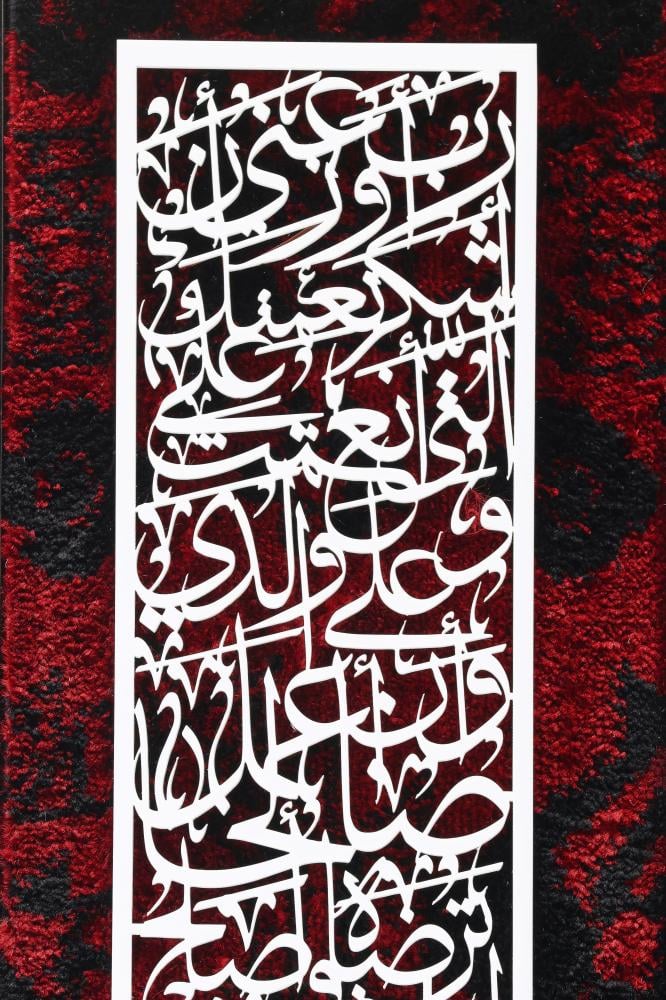 رب أوزعني أن
أشكر نعمتك
التي أنعمت علي
وعلى والدي
وأن أعمل
صالحا
ترضاه وأصلح